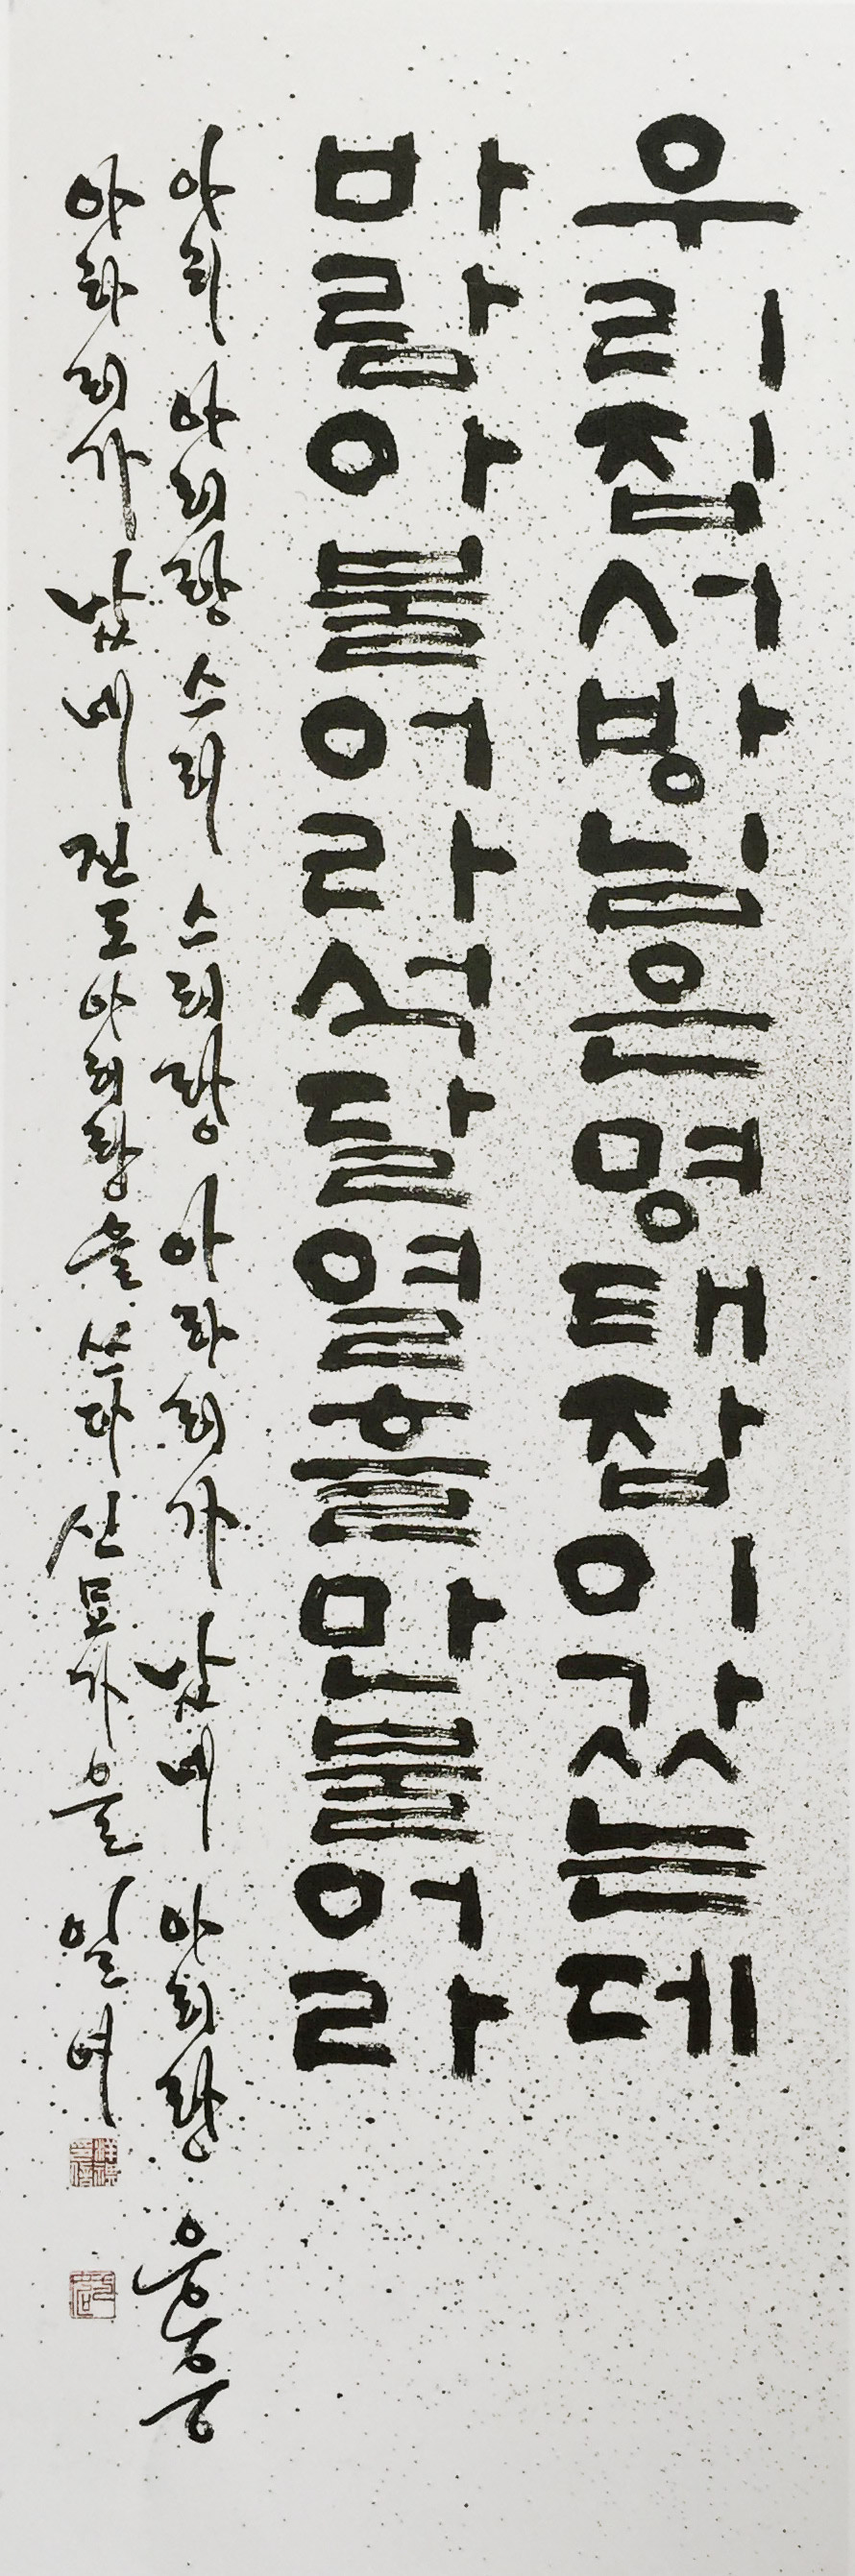 우리집서방님은명태잡이갔는데
바람아불어라석달열흘만불어라
아리 아리랑 스리 스리랑 아라리가 났네 아리랑 응응응
아라리가 났네 진도아리랑을 쓰다 신묘가을 일벼